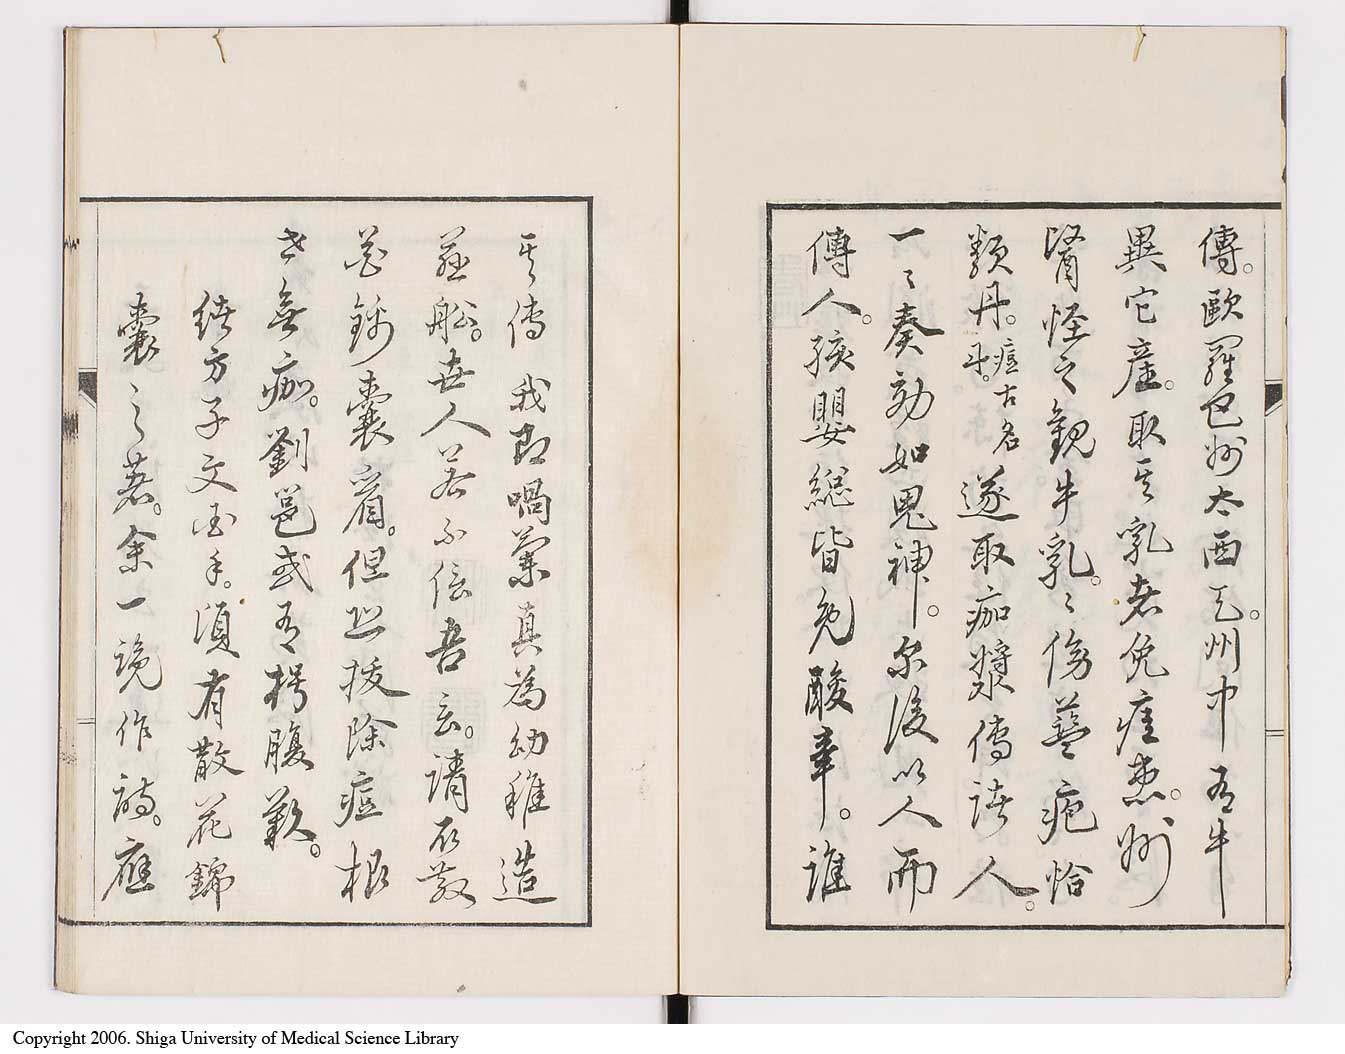 傳。歐羅巴州太西。州中有牛
異它産。取其乳者免痘患。州
怪之觀牛乳。〻傍疱恰
類丹。痘古名丹。遂取痂漿傳諸人。
一〻奏効如鬼神。尓後以人而
傳人。孩嬰總皆免酸辛。誰
其傳 我即喎蘭真為幼稚造
慈船。世人若不信吾言。請取散
花錦囊看。但恐拔除痘根
世無痂。劉邕或有枵腹歎。
緒方子文手。須有散花錦
囊之著。余一読作詩。應
Copyright 2006. Shiga University of Medical Science Library